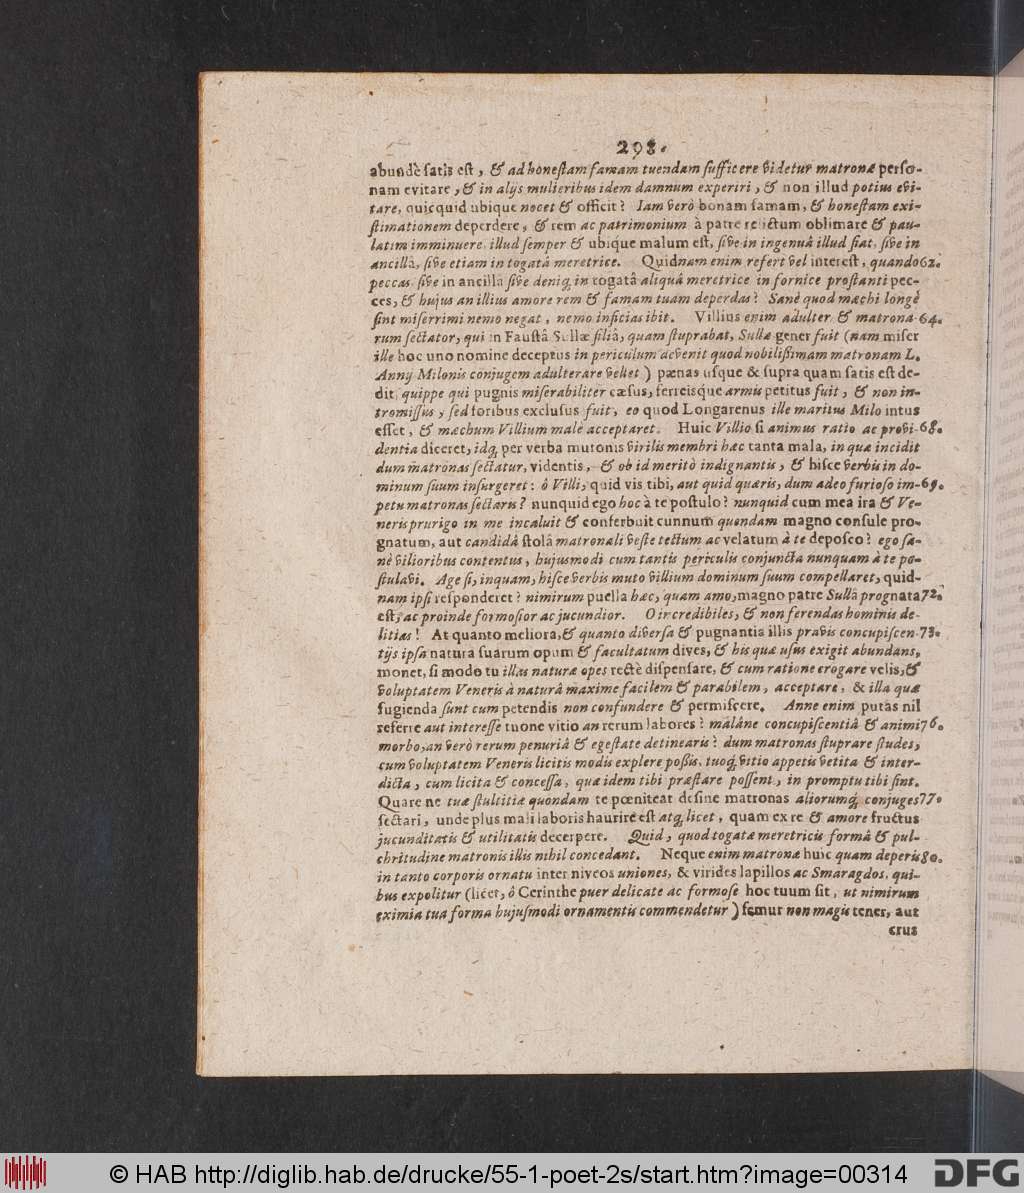 298.
abundè satis est, & ad honestam famam tuendam sufficere videtur matronæ perso-
nam evitare, & in alijs mulieribus idem damnum experiri, & non illud potius evi-
tare, quicquid ubique nocet & officit? Iam verò bonam famam, & honestam exi-
stimationem deperdere, & rem ac patrimonium à patre relictum oblimare & pau-
latim imminuere, illud semper & ubique malum est, sive in ingenuâ illud fiat, sive in
ancillâ, sive etiam in togatâ meretrice. Quidnam enim refert vel interest, quando 62.
peccas sive in ancilla sive deniq; in togatâ aliquâ meretrice in fornice prostanti pec-
ces, & hujus an illius amore rem & famam tuam deperdas? Sanè quod mœchi longè
sint miserrimi nemo negat, nemo inficias ibit. Villius enim adulter & matrona- 64.
rum sectator, qui in Faustâ Sullæ filiâ, quam stuprabat, Sullæ gener fuit (nam miser
ille hoc uno nomine deceptus in periculum devenit quod nobilißimam matronam L.
Annij Milonis conjugem adulterare vellet) pœnas usque & supra quam satis est de-
dit, quippe qui pugnis miserabiliter cæsus, ferreisque armis petitus fuit, & non in-
tromissus, sed foribus exclusus fuit, eo quod Longarenus ille maritus Milo intus
esset, & mœchum Villium malè acceptaret. Huic Villio si animus ratio ac provi- 68.
dentia diceret, idq; per verba mutonis virilis membri hæc tanta mala, in quæ incidit
dum matronas sectatur, videntis, & ob id meritò indignantis, & hisce verbis in do-
minum suum insurgeret: ô Villi, quid vis tibi, aut quid quæris, dum adeo furioso im- 69.
petu matronas sectaris? nunquid ego hoc à te postulo? nunquid cum mea ira & Ve-
neris prurigo in me incaluit & conferbuit cunnum quendam magno consule pro-
gnatum, aut candidâ stolâ matronali veste tectum ac velatum à te deposco? ego sa-
nè vilioribus contentus, hujusmodi cum tantis periculis conjuncta nunquam à te po-
stulavi. Age si, inquam, hisce verbis muto villium dominum suum compellaret, quid-
nam ipsi responderet? nimirum puella hæc, quam amo, magno patre Sullâ prognata 72.
est, ac proinde formosior ac jucundior. O incredibiles, & non ferendas hominis de-
litias! At quanto meliora, & quanto diversa & pugnantia illis pravis concupiscen- 73.
tijs ipsa natura suarum opum & facultatum dives, & his quæ usus exigit abundans,
monet, si modo tu illas naturæ opes rectè dispensare, & cum ratione erogare velis, &
voluptatem Veneris à naturâ maxime facilem & parabilem, acceptare, & illa quæ
fugienda sunt cum petendis non confundere & permiscere. Anne enim putas nil
referre aut interesse tuone vitio an rerum labores? malâne concupiscentiâ & animi 76.
morbo, an verò rerum penuriâ & egestate detinearis? dum matronas stuprare studes,
cum voluptatem Veneris licitis modis explere poßis, tuoq; vitio appetis vetita & inter-
dicta, cum licita & concessa, quæ idem tibi præstare possent, in promptu tibi sint.
Quare ne tuæ stultitiæ quondam te pœniteat desine matronas aliorumq; conjuges 77.
sectari, unde plus mali laboris haurire est atq; licet, quam ex re & amore fructus
jucunditatis & utilitatis decerpere. Quid, quod togatæ meretricis formâ & pul-
chritudine matronis illis nihil concedant. Neque enim matronæ huic quam deperis 80.
in tanto corporis ornatu inter niveos uniones, & virides lapillos ac Smaragdos, qui-
bus expolitur (licet, ô Cerinthe puer delicate ac formose hoc tuum sit, ut nimirum
eximia tua forma hujusmodi ornamentis commendetur) femur non magis tener, aut
crus
© HAB http://diglib.hab.de/drucke/55-1-poet-2s/start.htm?image=00314
DFG